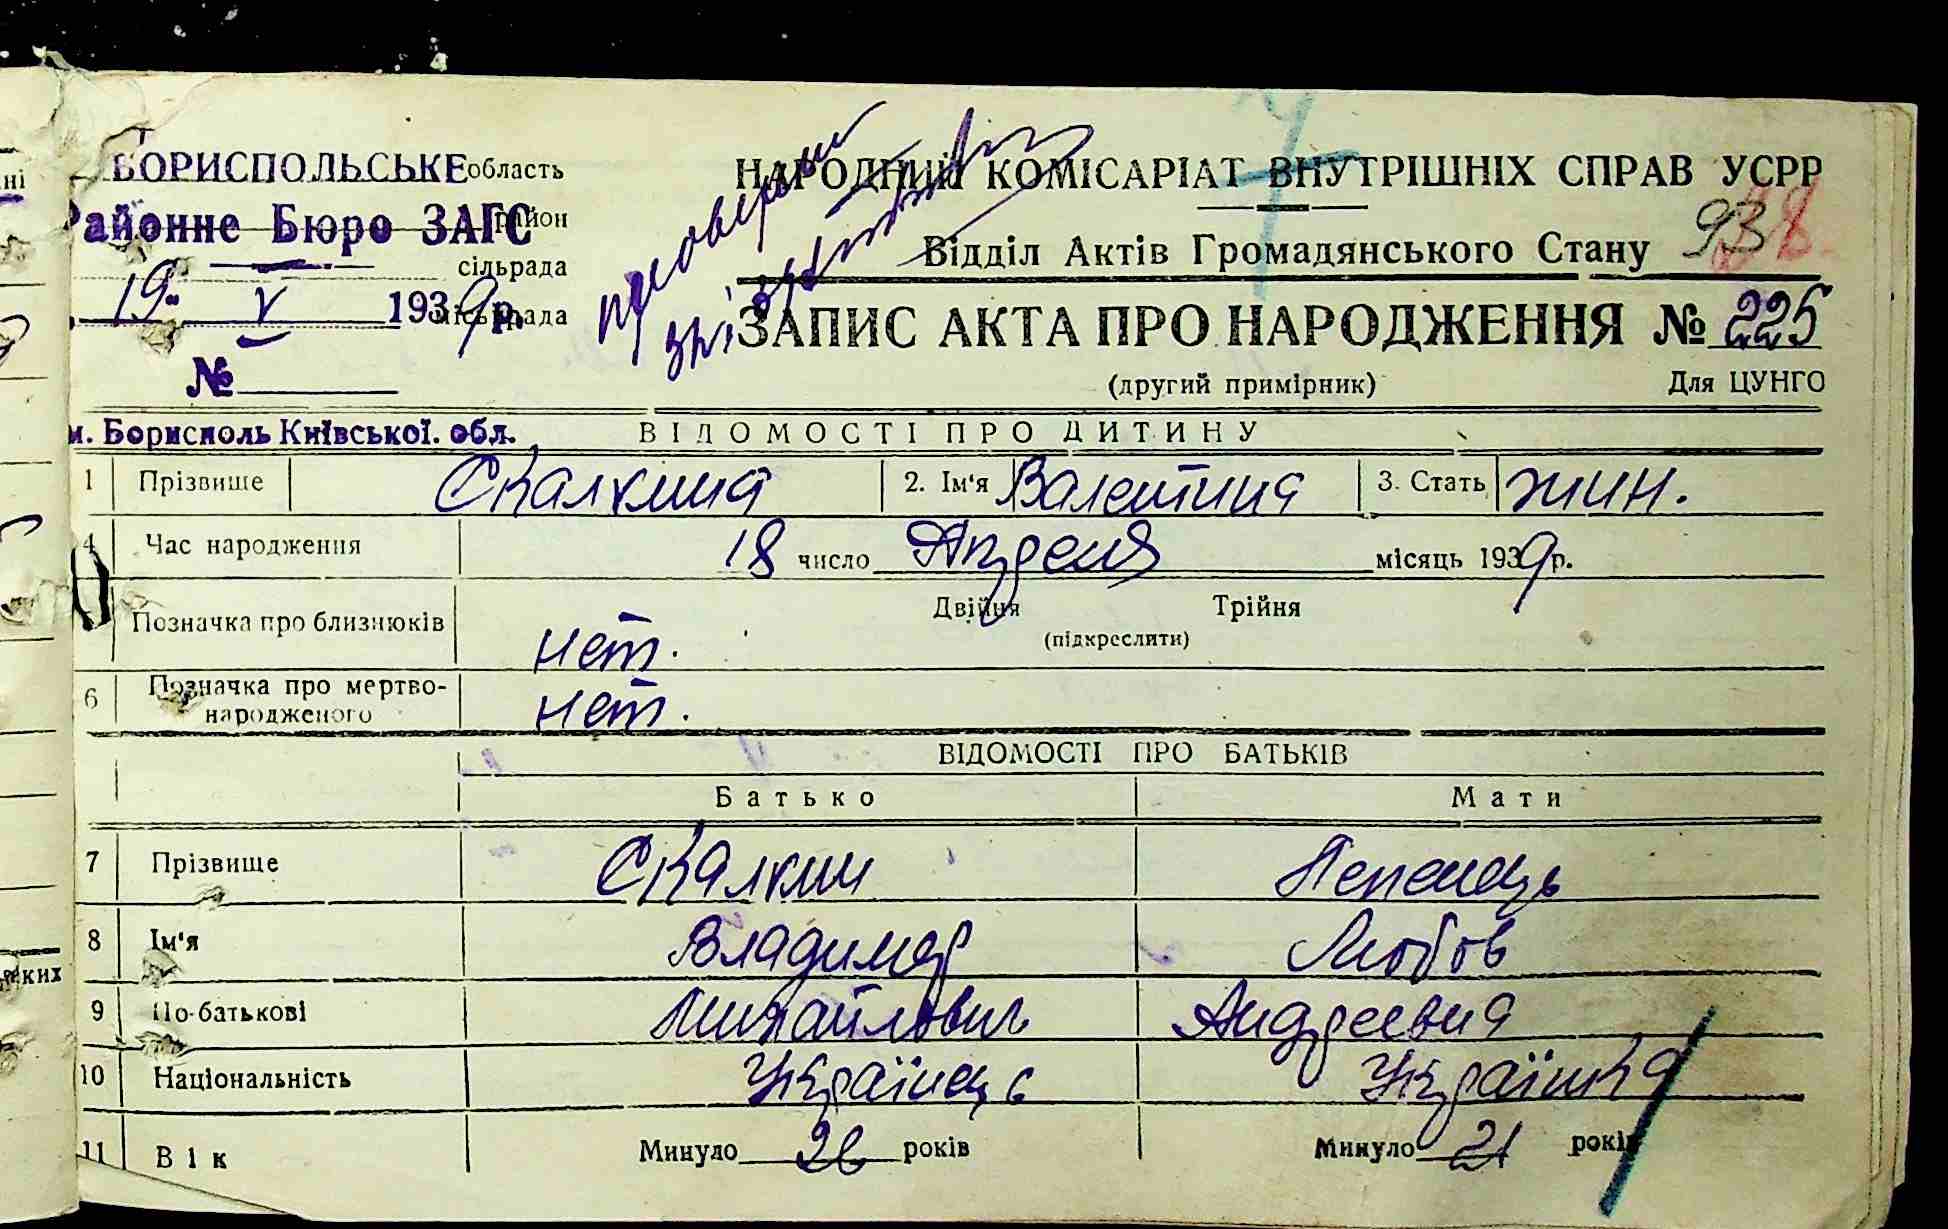 БОРИСПОЛЬСЬКЕ область
Районне Бюро ЗАГС район
сільрада
19. V 1939 р. міськрада
№
м. Бориспіль Київської обл.
НАРОДНИЙ КОМІСАРІАТ ВНУТРІШНІХ СПРАВ УСРР
Відділ Актів Громадянського Стану 93
ЗАПИС АКТА ПРО НАРОДЖЕННЯ № 225
(другий примірник) Для ЦУНГО
ВІДОМОСТІ ПРО ДИТИНУ
1 Прізвище Скалкина 2. Ім'я Валентина 3. Стать жин.
4 Час народження 18 число Апреля місяць 1939 р.
Позначка про близнюків нет. Двійня Трійня
(підкреслити)
6 Позначка про мертво-
народженого нет.
ВІДОМОСТІ ПРО БАТЬКІВ
Батько Мати
7 Прізвище Скалкин
8 Ім'я Владимер Любов
9 По-батькові Михайлович Андреевна
10 Національність Українець Українка
11 Вік Минуло 26 років Минуло 21 років